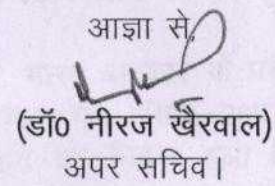 आज्ञा से,
(डॉ० नीरज खैरवाल)
अपर सचिव।